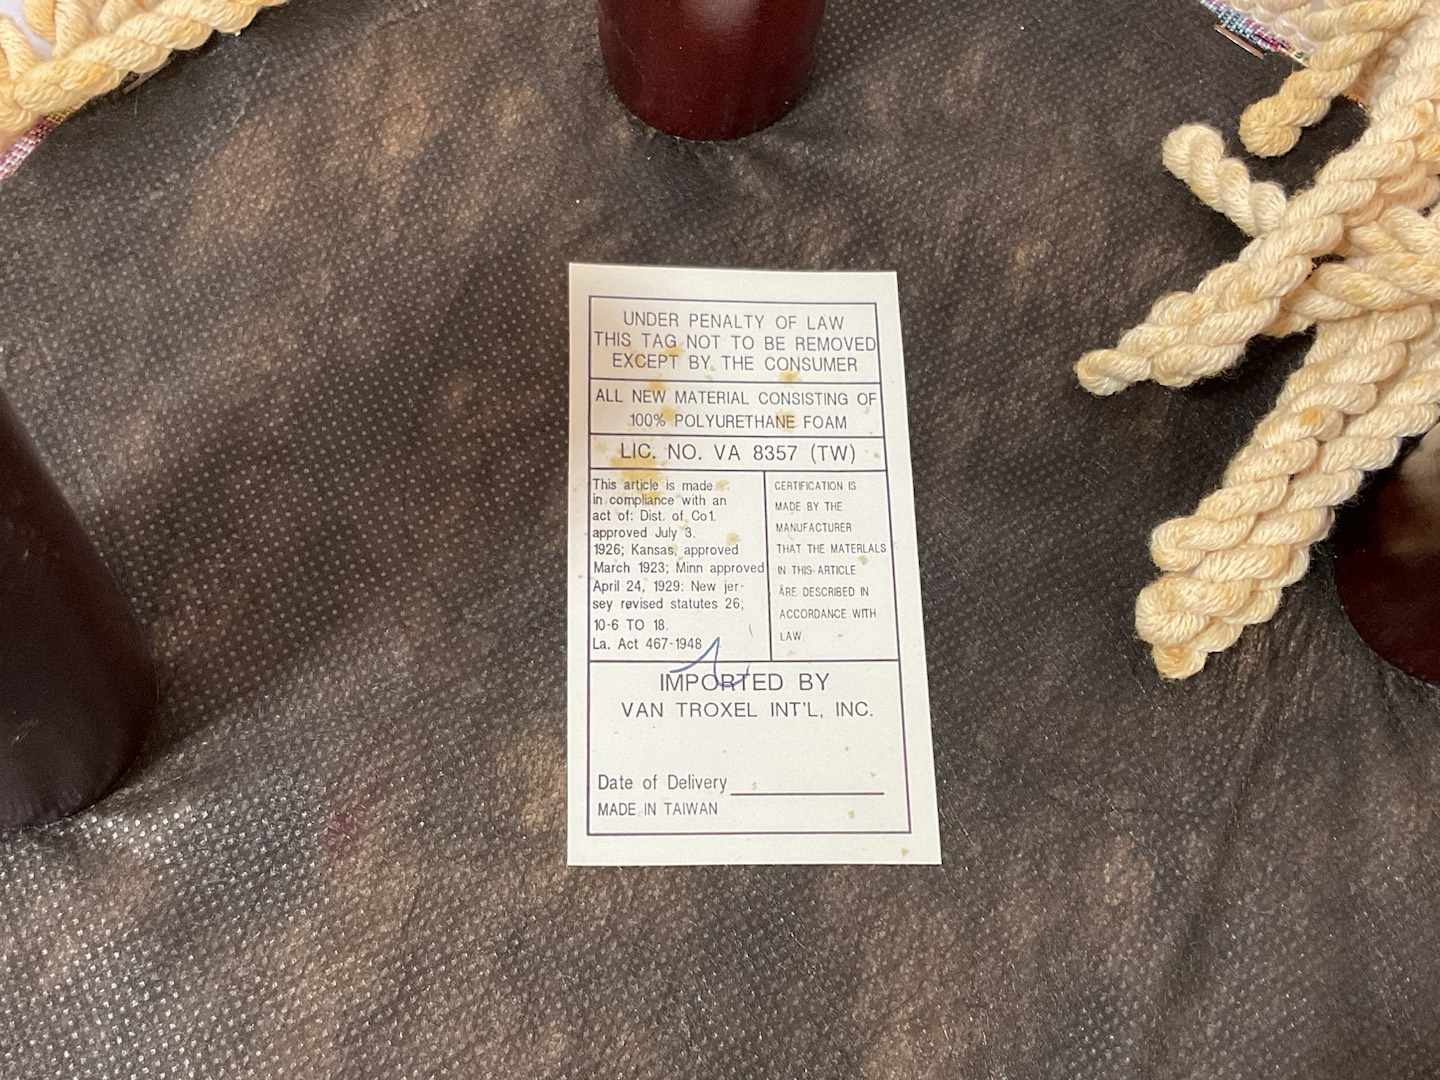 UNDER PENALTY OF LAW
THIS TAG NOT TO BE REMOVED
EXCEPT BY THE CONSUMER
ALL NEW MATERIAL CONSISTING OF
100% POLYURETHANE FOAM
LIC. NO. VA 8357 (TW)
This article is made
in compliance with an
act of: Dist. of Co1.
approved July 3.
1926; Kansas, approved
March 1923; Minn approved
April 24, 1929: New jer-
sey revised statutes 26;
10-6 TO 18.
La. Act 467-1948
CERTIFICATION IS
MADE BY THE
MANUFACTURER
THAT THE MATERLALS
IN THIS ARTICLE
ARE DESCRIBED IN
ACCORDANCE WITH
LAW.
IMPORTED BY
VAN TROXEL INT'L, INC.
Date of Delivery
MADE IN TAIWAN